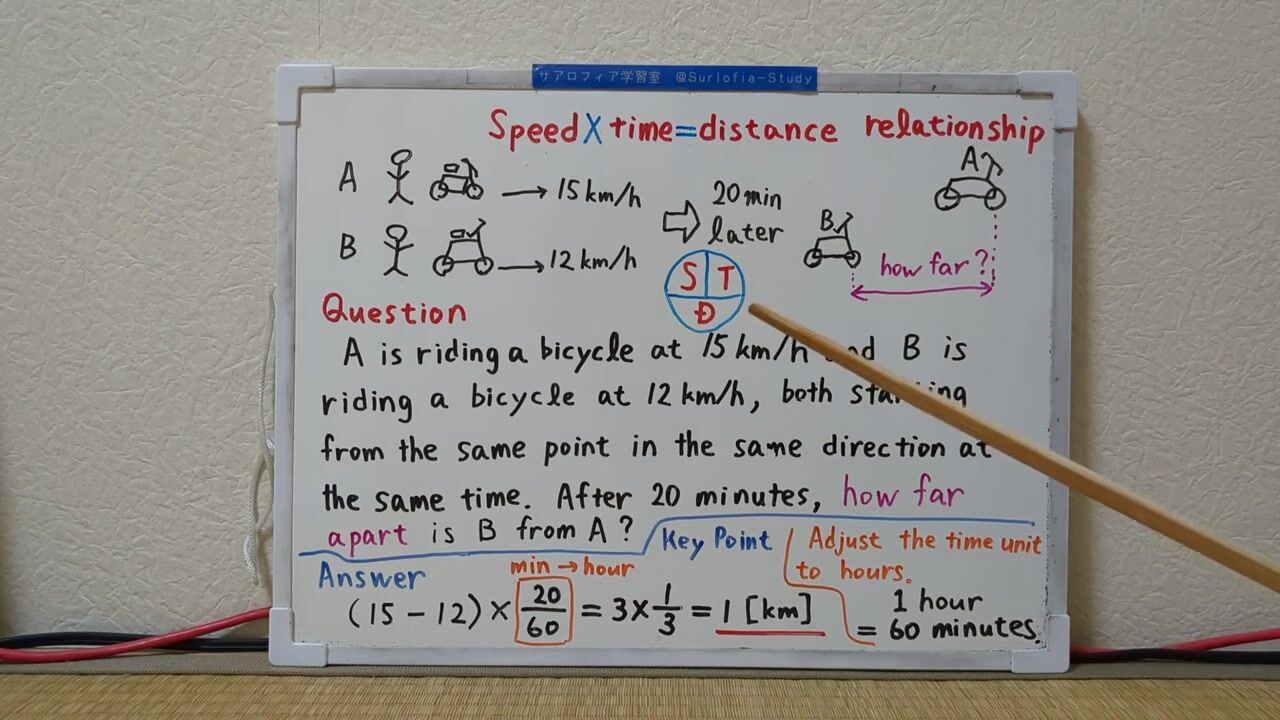 サアロフィア学習室 @Surlofia-Study
Speed X time = distance relationship
A → 15 km/h
B → 12 km/h
20 min
later
B
A
how far ?
S T
D
Question
A is riding a bicycle at 15 km/h and B is
riding a bicycle at 12 km/h, both starting
from the same point in the same direction at
the same time. After 20 minutes, how far
apart is B from A ?
Key Point
Adjust the time unit
to hours.
1 hour
= 60 minutes.
Answer
min → hour
(15 - 12) × 20/60 = 3 × 1/3 = 1 [km]